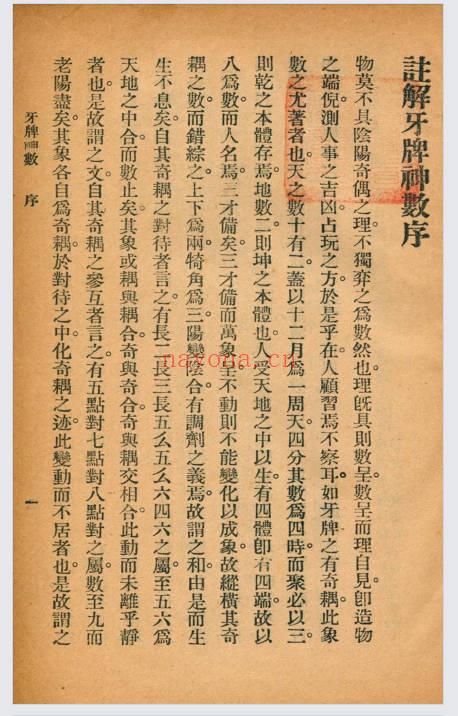 註解牙牌神數序
物莫不具陰陽奇偶之理。不獨弈之爲數然也。理旣具則數呈。數呈而理自見。卽造物
之端倪。測人事之吉凶。占玩之方。於是乎在。人顧習焉不察耳。如牙牌之有奇耦。此象
數之尤著者也。天之數十有二。蓋以十二月爲一周天。四分其數爲四時。而聚必以三。
則乾之本體存焉。地數二。則坤之本體也。人受天地之中以生。有四體卽有四端。故以
八爲數。而人名焉。三才備矣。三才備而萬象呈。不動則不能變化以成象。故縱橫其奇
耦之數而錯綜之。上下爲兩。犄角爲三。陽變陰合。有調劑之義焉。故謂之和。由是而生
生不息矣。自其奇耦之對待者言之。有長二長三長五么五么六四六之屬。至五六爲
天地之中合而數止矣。其象或耦與耦合。奇與奇合。奇與耦交相合。此動而未離乎靜
者也。是故謂之文。自其奇耦之參互者言之。有五點對七點對八點對之屬。數至九而
老陽盡矣。其象各自爲奇耦。於對待之中。化奇耦之迹。此變動而不居者也。是故謂之
牙牌神數 序
一
nayona.cn